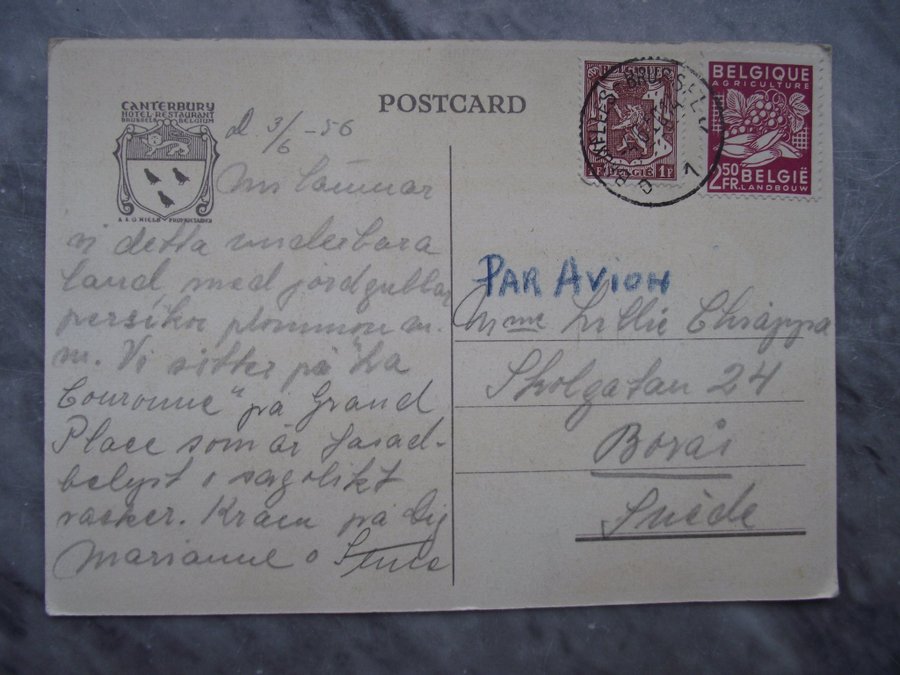 CANTERBURY
HOTEL RESTAURANT
BRUSSELS BELGIUM
PROPRIETAIRES
POSTCARD
d. 3/6 -56
Nu lämnar
vi detta underbara
land med jordgubbar
persikor plommon m.
m. Vi sitter på "La
Couronne" på Grand
Place som är fasad-
belyst o sagolikt
vacker. Kram på Dig
Marianne o
BELGIE 1F
BRUXELLES BRUSSEL
1
D
BELGIQUE
AGRICULTURE
2.50 BELGIË
FR. LANDBOUW
PAR AVION
Mme Lillie Chiappa
Skolgatan 24
Borås
Suède